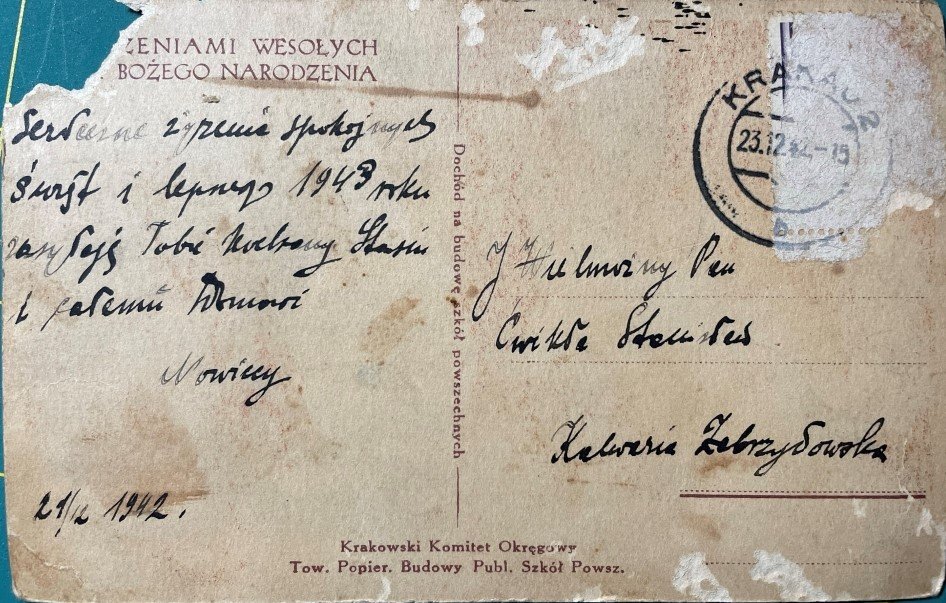 ŻENIAMI WESOŁYCH
BOŻEGO NARODZENIA
Serdeczne życzenia spokojnych
świąt i lepszego 1943 roku
zasyłają Tobie Kochany Stasiu
i całemu Domowi
Nowiccy
21/12 1942.
Dochód na budowę szkół powszechnych
KRAKAU 2
23.12.42-18
JWielmożny Pan
Ćwikła Stanisław
Kalwaria Zebrzydowska
Krakowski Komitet Okręgowy
Tow. Popier. Budowy Publ. Szkół Powsz.